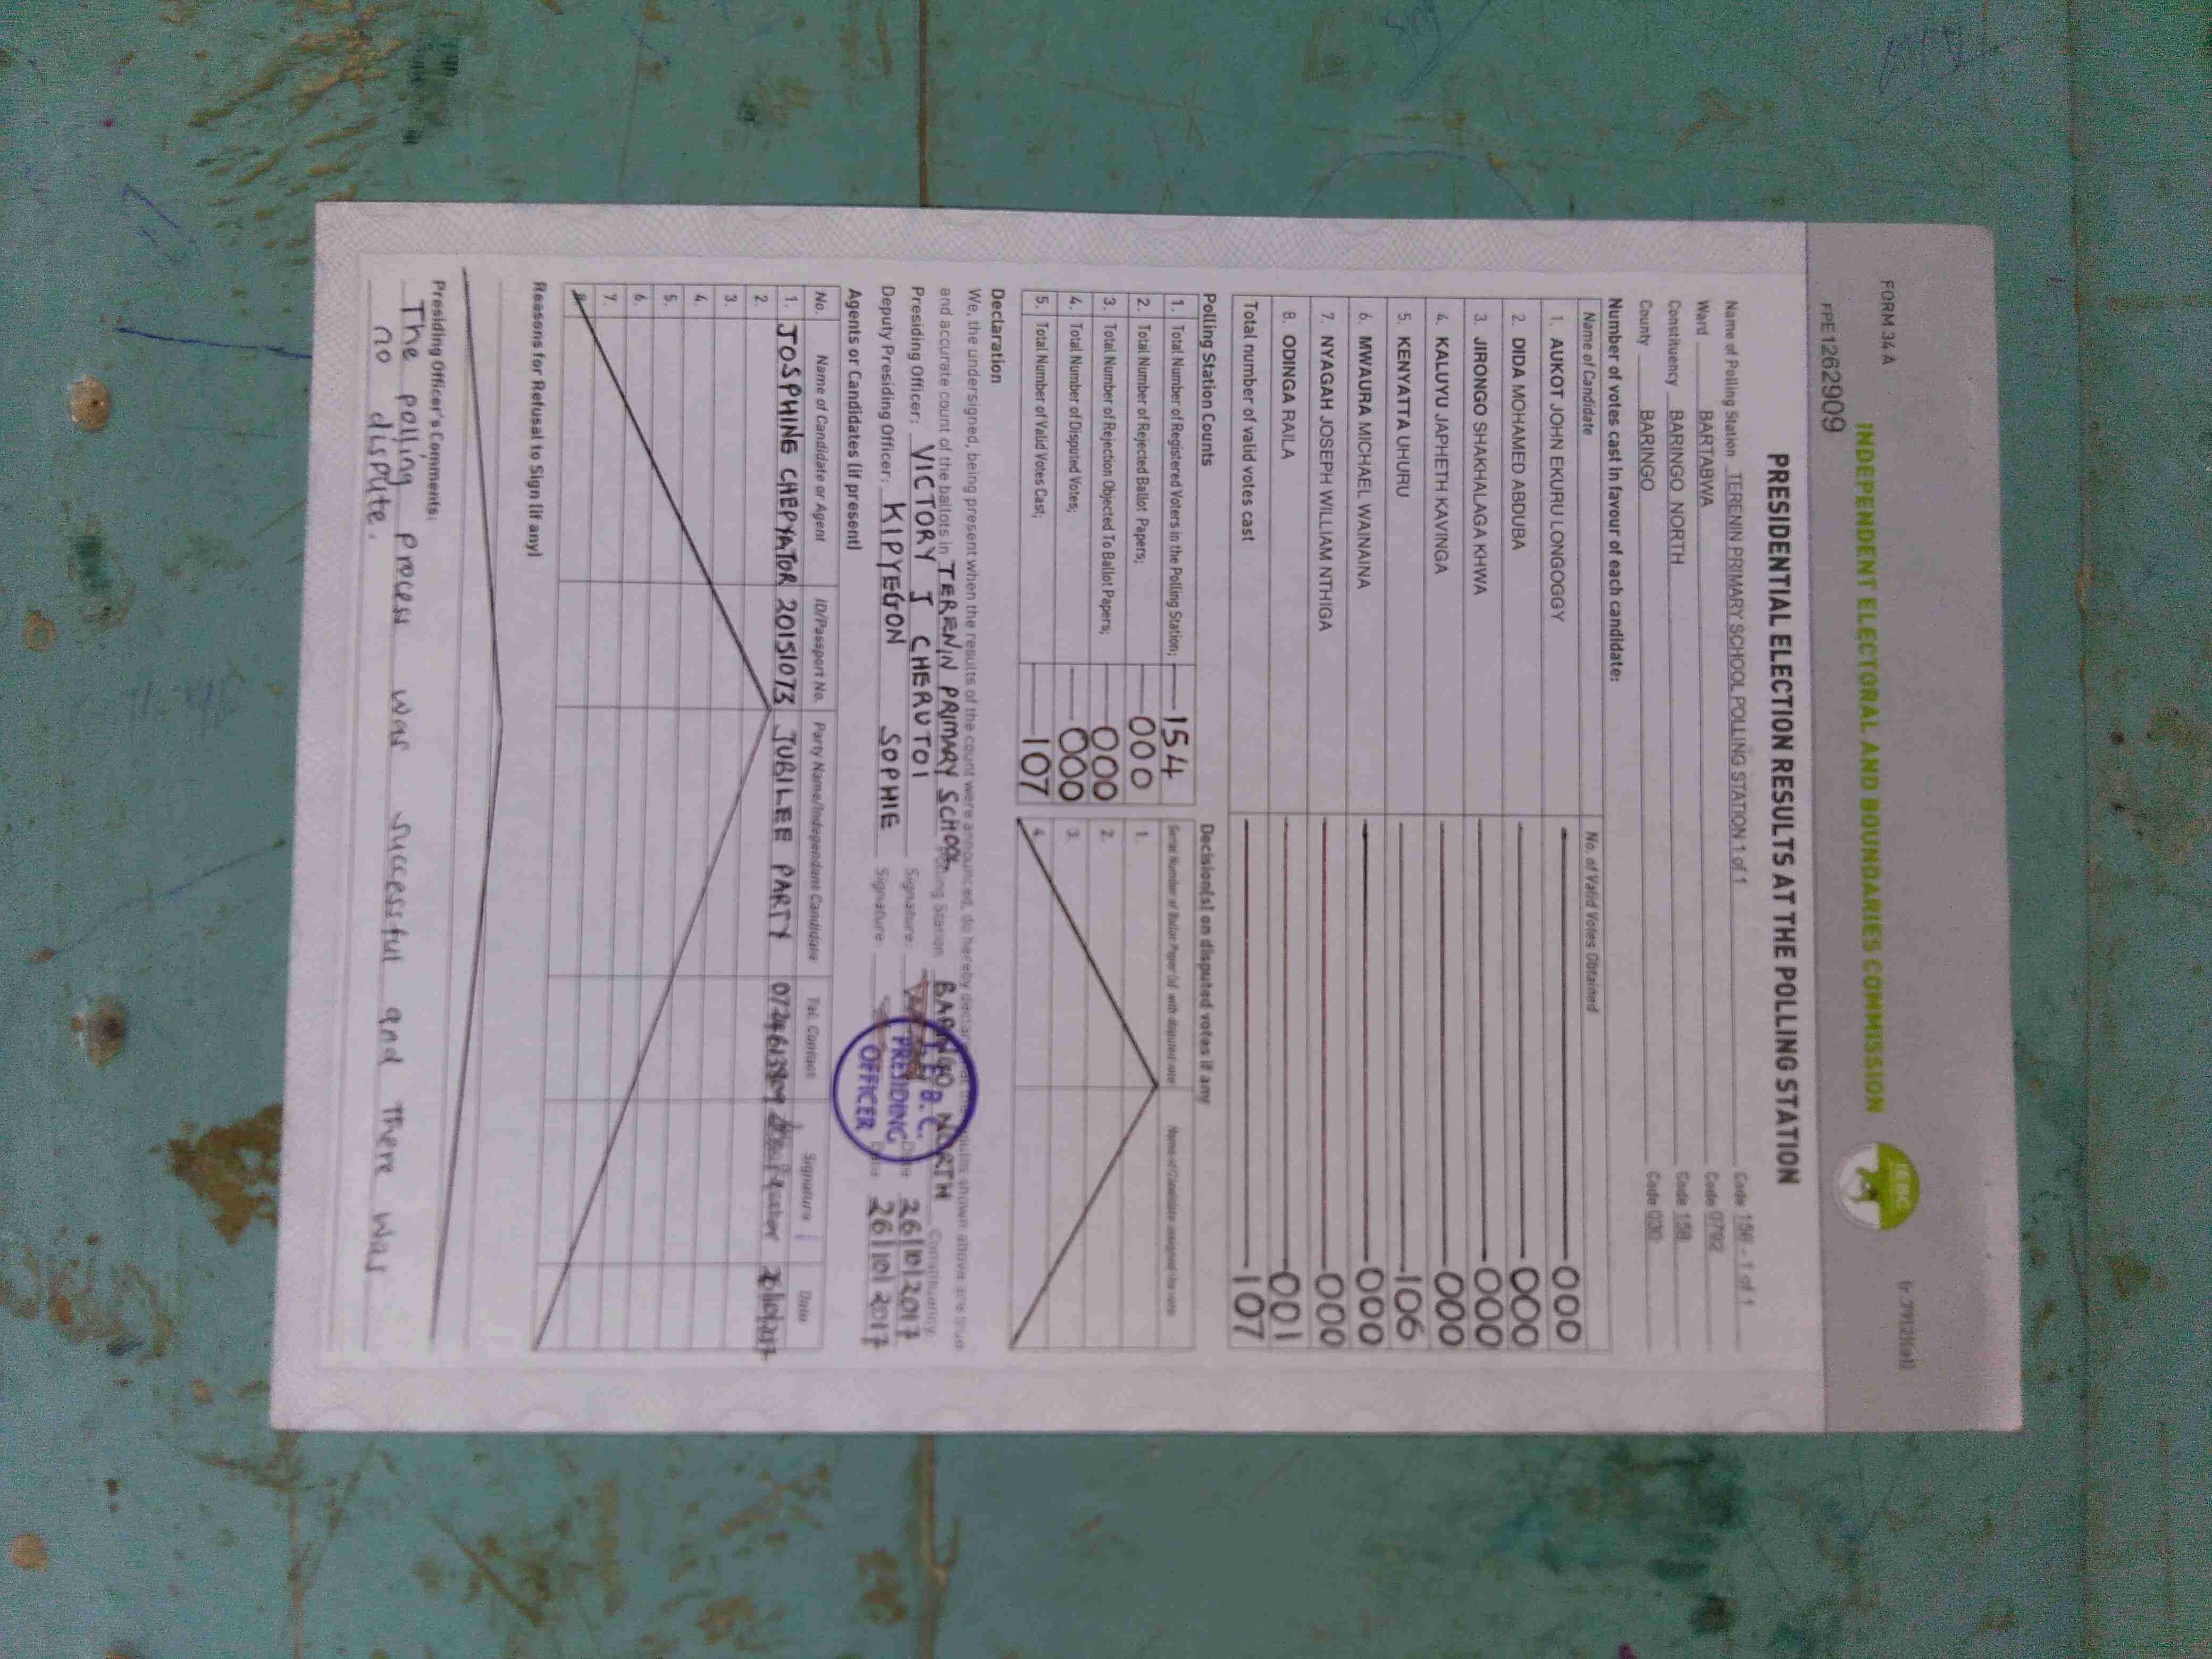 FORM 34 A
INDEPENDENT ELECTORAL AND BOUNDARIES COMMISSION
FPE1262909
PRESIDENTIAL ELECTION RESULTS AT THE POLLING STATION
Name of Polling Station TERENIN PRIMARY SCHOOL POLLING STATION 1 of 1 Code 158 - 1 of 1
Ward BARTABWA Code 0792
Constituency BARINGO NORTH Code 158
County BARINGO Code 030
Number of votes cast in favour of each candidate:
Name of Candidate No. of Valid Votes Obtained
1. AUKOT JOHN EKURU LONGOGGY 000
2. DIDA MOHAMED ABDUBA 000
3. JIRONGO SHAKHALAGA KHWA 000
4. KALUYU JAPHETH KAVINGA 000
5. KENYATTA UHURU 106
6. MWAURA MICHAEL WAINAINA 000
7. NYAGAH JOSEPH WILLIAM NTHIGA 000
8. ODINGA RAILA 001
Total number of valid votes cast 107
Polling Station Counts Decision(s) on disputed votes if any
1. Total Number of Registered Voters in the Polling Station; 154 Serial Number of Ballot Paper (s) with disputed vote Name of Candidate assigned the vote
2. Total Number of Rejected Ballot Papers; 000 1.
3. Total Number of Rejection Objected To Ballot Papers; 000 2.
4. Total Number of Disputed Votes; 000 3.
5. Total Number of Valid Votes Cast; 107 4.
Declaration
We, the undersigned, being present when the results of the count were announced, do hereby declare that the results shown above are true
and accurate count of the ballots in TERENIN PRIMARY SCHOOL Polling Station BARINGO NORTH Constituency.
Presiding Officer: VICTORY J CHERUTOI Signature: Date: 26/10/2017
Deputy Presiding Officer: KIPYEGON SOPHIE Signature: Date: 26/10/2017
I.E.B.C.
PRESIDING
OFFICER
Agents or Candidates (if present)
No. Name of Candidate or Agent ID/Passport No. Party Name/Independent Candidate Tel. Contact Signature Date
1. JOSPHINE CHEPYATOR 20151073 JUBILEE PARTY
2.
3.
4.
5.
6.
7.
8.
Reasons for Refusal to Sign (if any)
Presiding Officer's Comments:
The polling process was successful and there was
no dispute.